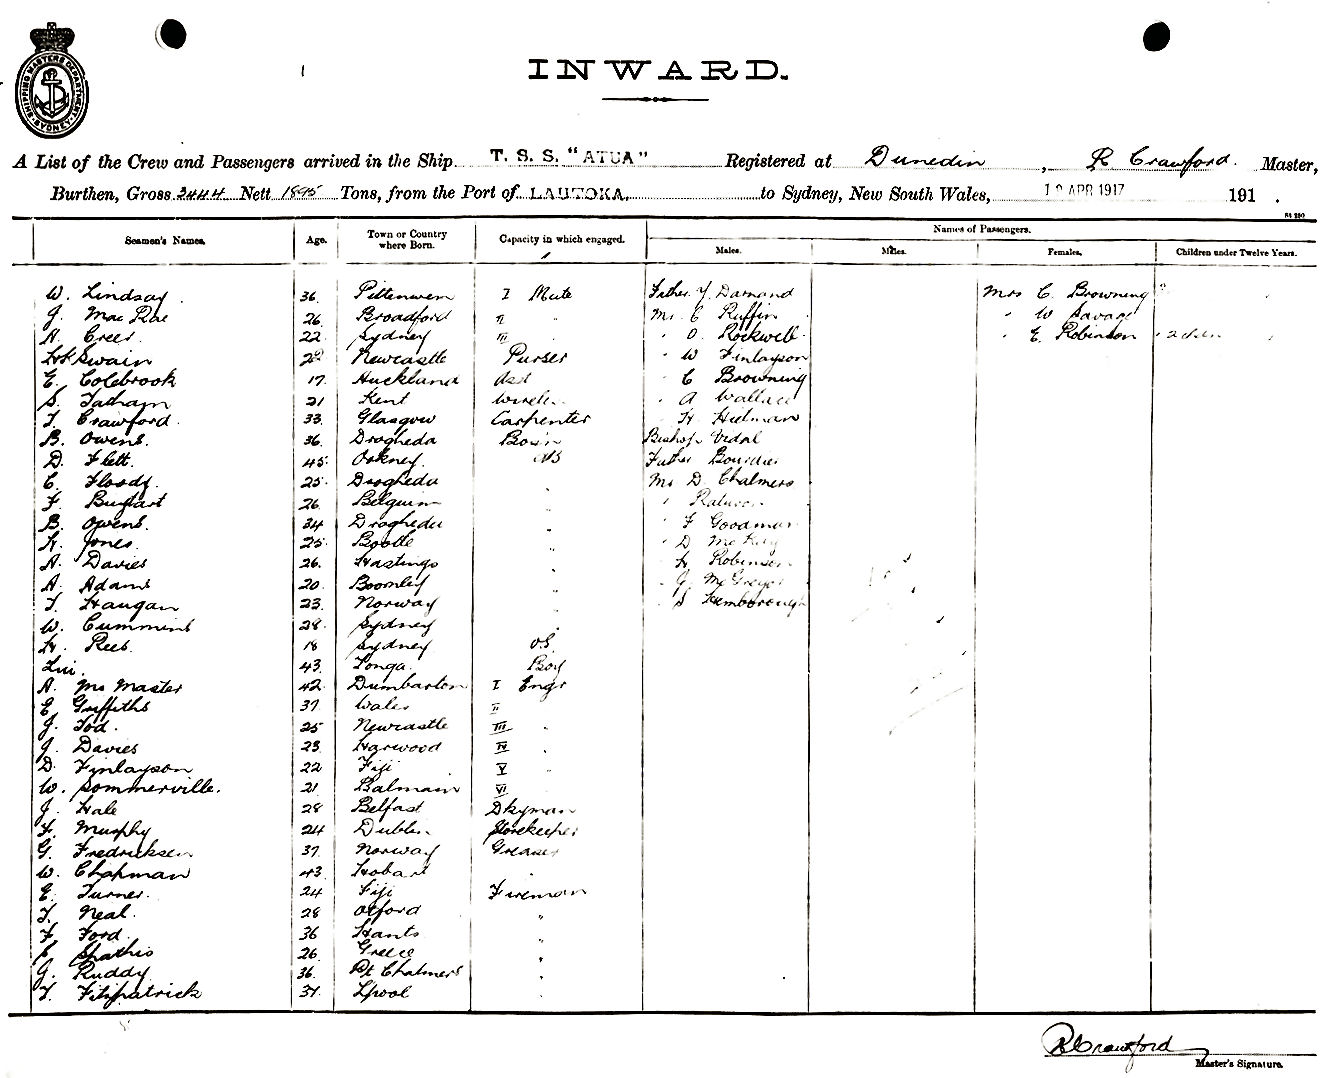 SHIPPING MASTERS DEPARTMENT SYDNEY
INWARD.
A List of the Crew and Passengers arrived in the Ship T. S. S. "ATUA" Registered at Dunedin, R Crawford. Master,
Burthen, Gross 3444 Nett 1895 Tons, from the Port of LAUTOKA. to Sydney, New South Wales, APR 1917 191 .
Seamen's Names. Age. Town or Country where Born. Capacity in which engaged. Names of Passengers.
Males. Males. Females. Children under Twelve Years.
W. Lindsay 36 Pittenwem I Mate Father Y. Darnand Mrs C. Browning
J. Mac Rae 26 Broadford II " Mr C Ruffin " W Savage
A. Crees 22 Sydney III " O. Rockwell " E. Robinson
Swain Newcastle Purser " W Finlayson
E. Colebrook 17 Auckland Asst " C Browning
S. Tatham 21 Kent Wireless " A Wallace
T. Crawford 33 Glasgow Carpenter " H
B. Owens. 36 Drogheda Bos'n Bishop Vidal
D. Flett. 45 Orkney. AB Father
C. Floody. 25 Drogheda " Mr D. Chalmers
F. 26 Belguim " "
B. Owens. 34 Drogheda " " F Goodman
H. Jones. 25 Bootle " " D McKay
A. Davies 26. Hastings " " H Robinson
A. Adams 20. Boomley " " G McGregor
T. Haugan 23. Norway " " S
W. Cummins 28 Sydney "
H. Rees 18 Sydney OS.
Lui. 43. Tonga. Boy
A. Mc Master 42. Dumbarton I Engr
E Griffiths 37 Wales II "
J. Tod. 25 Newcastle III "
J. Davies 23 Harwood IV "
D. Finlayson 22 Fiji V "
W. Sommerville. 21 Balmain VI
J. Hale 28 Belfast Dkyman
F. Murphy 24 Dublin Storekeeper
G. Fredricksen 37. Norway Greaser
W. Chapman 43 Hobart "
E. Turner. 24 Fiji Fireman
T. Neal. 28 Oxford "
F. Ford. 36 Hants "
Spathis 26. Greece "
G. Ruddy. 36. Pt Chalmers "
T. Fitzpatrick 37 Lpool "
R Crawford
Master's Signature.